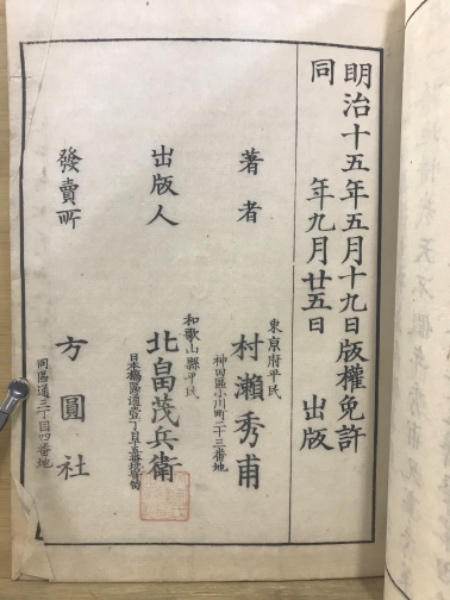 明治十五年五月十九日版權免許
同 年九月廿五日 出版
著者
東京府平民
村瀨秀甫
神田區小川町二十三番地
出版人
和歌山縣平民
北畠茂兵衛
發賣所
方圓社
同區通三丁目四番地